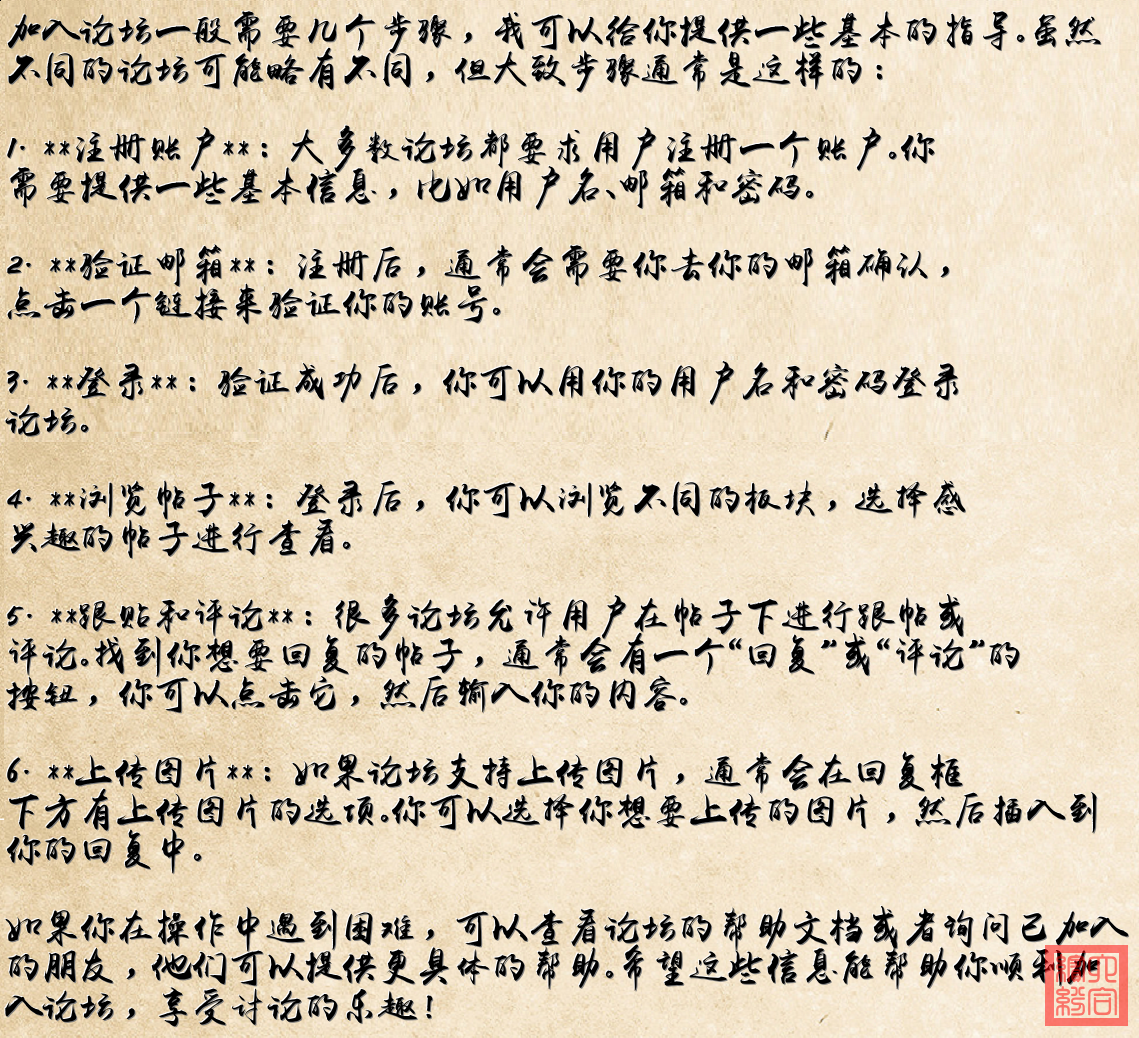 加入论坛一般需要几个步骤，我可以给你提供一些基本的指导。虽然
不同的论坛可能略有不同，但大致步骤通常是这样的：
1. **注册账户**：大多数论坛都要求用户注册一个账户。你
需要提供一些基本信息，比如用户名、邮箱和密码。
2. **验证邮箱**：注册后，通常会需要你去你的邮箱确认，
点击一个链接来验证你的账号。
3. **登录**：验证成功后，你可以用你的用户名和密码登录
论坛。
4. **浏览帖子**：登录后，你可以浏览不同的板块，选择感
兴趣的帖子进行查看。
5. **跟贴和评论**：很多论坛允许用户在帖子下进行跟帖或
评论。找到你想要回复的帖子，通常会有一个“回复”或“评论”的
按钮，你可以点击它，然后输入你的内容。
6. **上传图片**：如果论坛支持上传图片，通常会在回复框
下方有上传图片的选项。你可以选择你想要上传的图片，然后插入到
你的回复中。
如果你在操作中遇到困难，可以查看论坛的帮助文档或者询问已加入
的朋友，他们可以提供更具体的帮助。希望这些信息能帮助你顺利加
入论坛，享受讨论的乐趣！